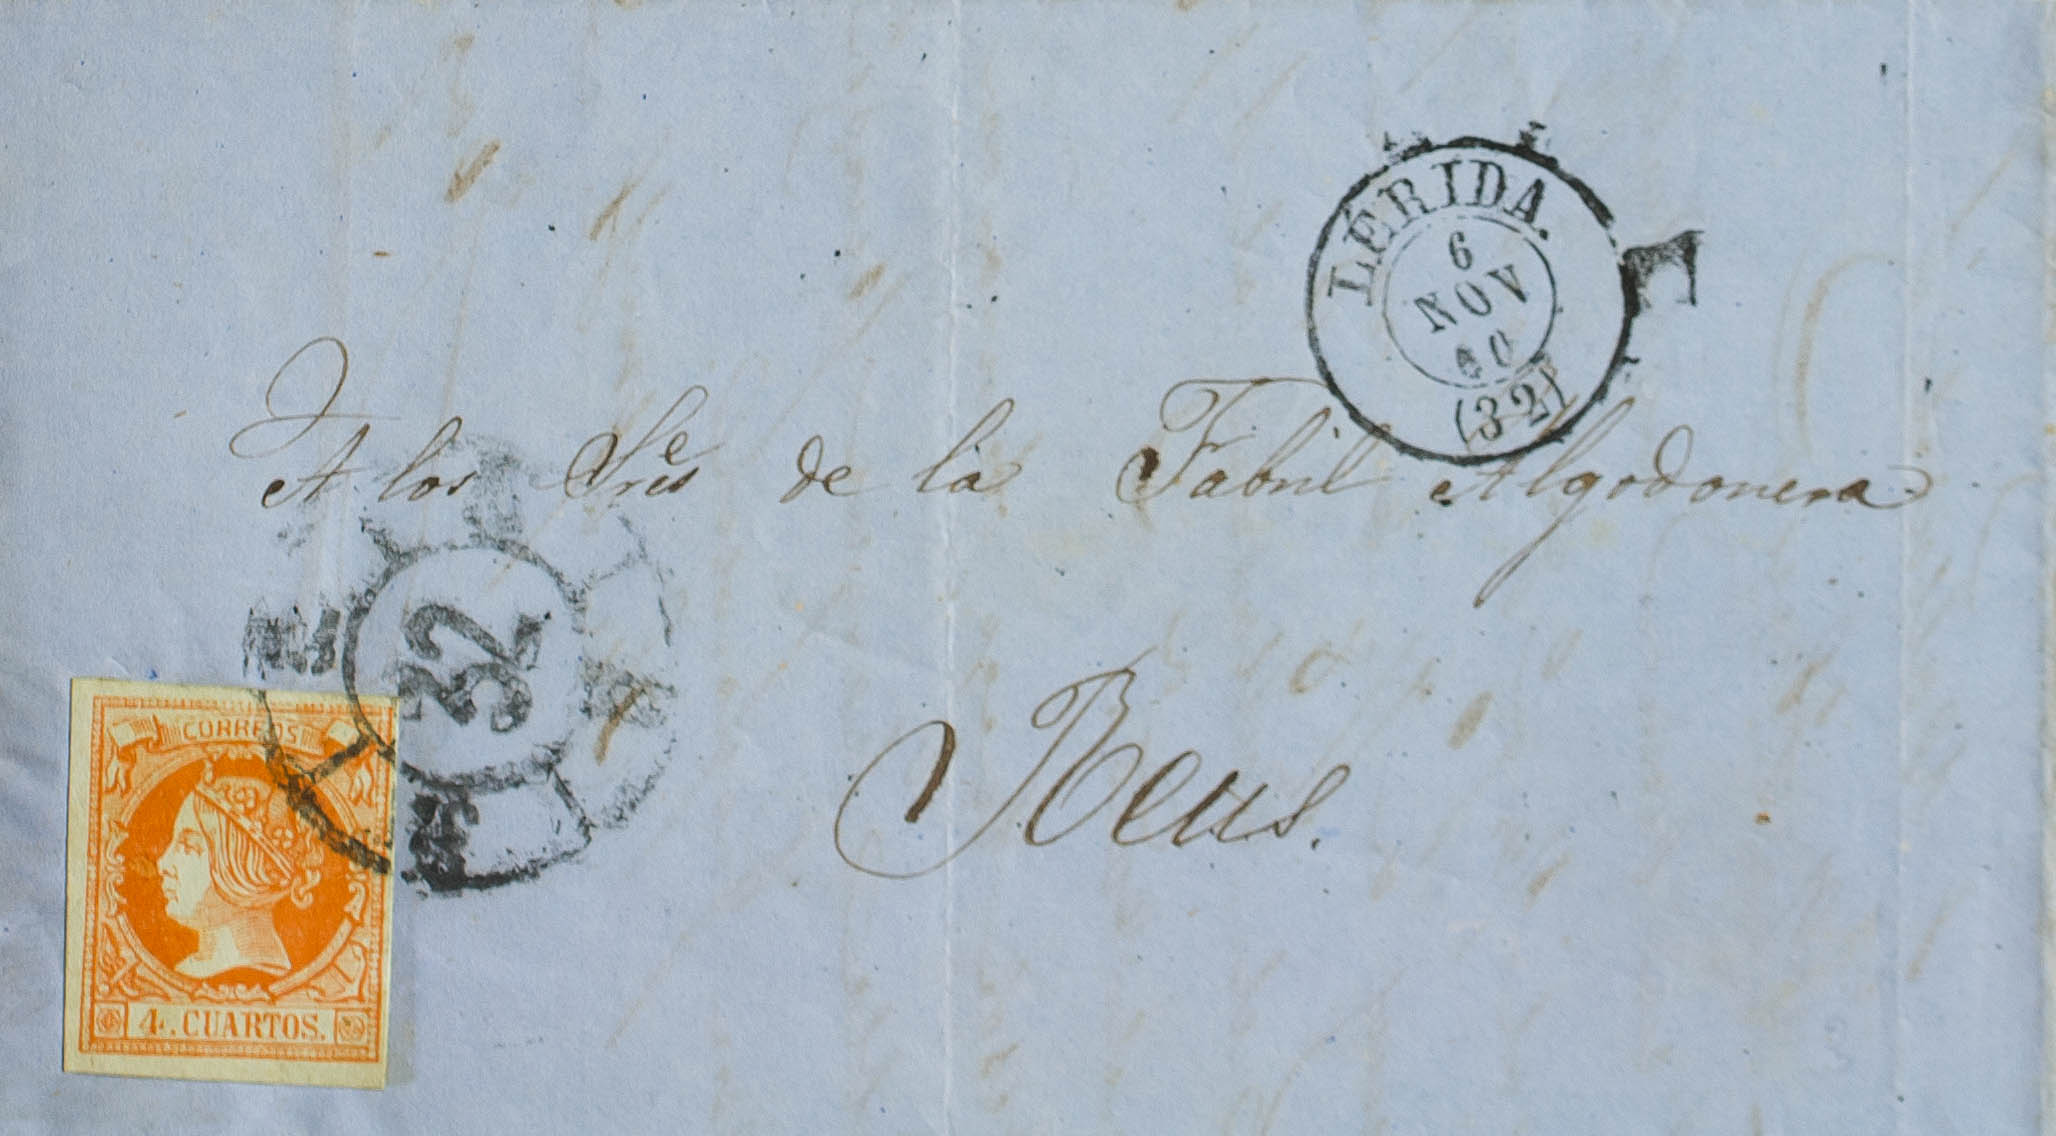 LÉRIDA.
6
NOV
60
(32)
A los Sres de la Fabril Algodonera
32
Reus.
CORREOS
4. CUARTOS.